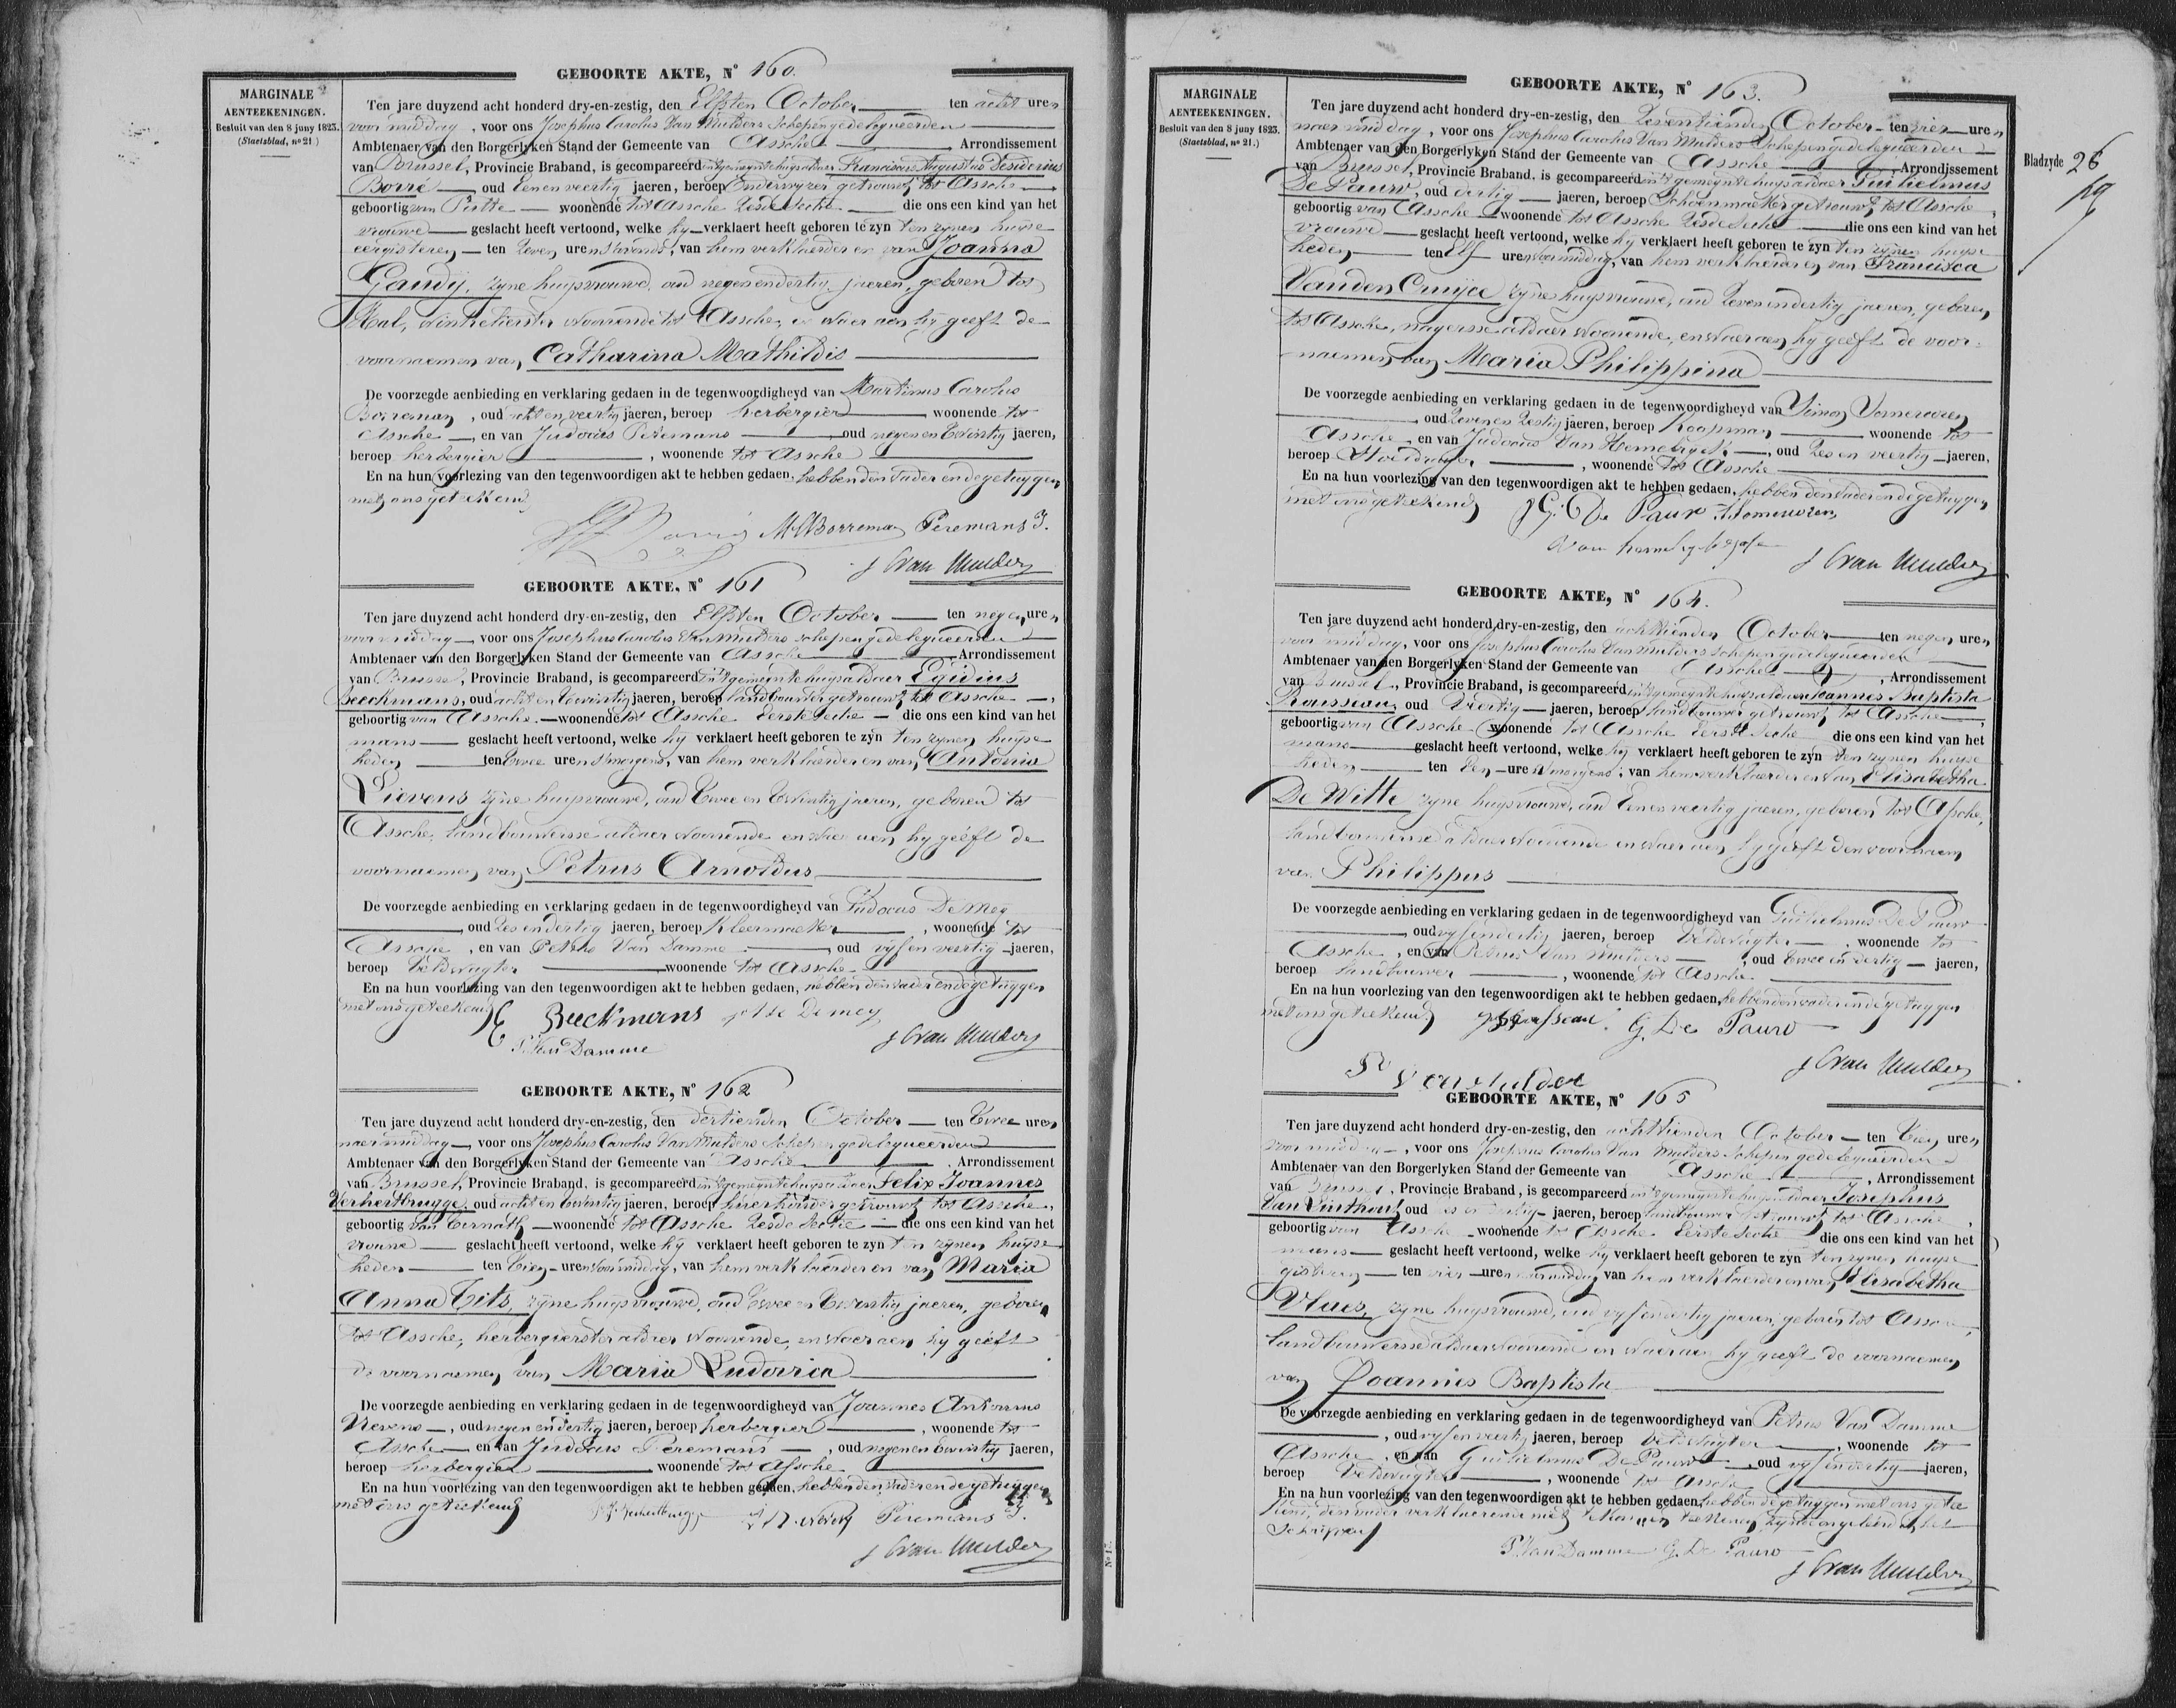 GEBOORTE AKTE, N° 160.
MARGINALE
AENTEEKENINGEN.
Besluit van den 8 juny 1823.
(Staetsblad, n° 21.)
Ten jare duyzend acht honderd dry-en-zestig, den Elfsten October ten acht uren
voor middag, voor ons Josephus Carolus Van Mulders Schepen gedelegueerden
Ambtenaer van den Borgerlyken Stand der Gemeente van Assche Arrondissement
van Brussel, Provincie Braband, is gecompareerd in 't gemeynte huys aldaer Franciscus Augustus Desiderius
Borré, oud Eenen veertig jaeren, beroep Onderwyzer getrouwd tot Assche
geboortig van Putte woonende tot Assche Zesde Sectie die ons een kind van het
vrouwe geslacht heeft vertoond, welke hy verklaert heeft geboren te zyn ten zynen huyse
eergisteren ten Zeven uren s'avonds, van hem verklaerder en van Joanna
Gaudy, zyne huysvrouwe, oud negenendertig jaeren, geboren tot
Hal, winkelierster woonende tot Assche, en waer aen hy geeft de
voornaemen van Catharina Mathildis
De voorzegde aenbieding en verklaring gedaen in de tegenwoordigheyd van Martinus Carolus
Borreman, oud acht en veertig jaeren, beroep herbergier woonende tot
Assche, en van Judocus Peremans oud negen en twintig jaeren,
beroep herbergier, woonende tot Assche
En na hun voorlezing van den tegenwoordigen akt te hebben gedaen, hebben den vader en de getuygen
met ons geteekend
M. Borreman Peremans J.
J C van Mulders
GEBOORTE AKTE, N° 161
Ten jare duyzend acht honderd dry-en-zestig, den Elfsten October ten negen uren
voor middag voor ons Josephus Carolus Van Mulders schepen gedelegueerden
Ambtenaer van den Borgerlyken Stand der Gemeente van Assche Arrondissement
van Brussel, Provincie Braband, is gecompareerd in 't gemeynte huys aldaer Egidius
Beeckmans, oud acht en twintig jaeren, beroep landbouwer getrouwd tot Assche,
geboortig van Assche woonende tot Assche Eerste Sectie die ons een kind van het
mans geslacht heeft vertoond, welke hy verklaert heeft geboren te zyn ten zynen huyse
heden ten twee uren s'morgens, van hem verklaerder en van Antonia
Lievens zyne huysvrouwe, oud twee en twintig jaeren, geboren tot
Assche, landbouwersse aldaer woonende en waer aen hy geeft de
voornaemen van Petrus Arnoldus
De voorzegde aenbieding en verklaring gedaen in de tegenwoordigheyd van Judocus De Mey
oud Zes en dertig jaeren, beroep Kleermaeker, woonende tot
Assche, en van Petrus Van Damme, oud vyf en veertig jaeren,
beroep Veldwagter woonende tot Assche
En na hun voorlezing van den tegenwoordigen akt te hebben gedaen, hebben den vader en de getuygen
met ons geteekend E Beeckmans De mey
P. Van Damme J C van Mulders
GEBOORTE AKTE, N° 162
Ten jare duyzend acht honderd dry-en-zestig, den dertienden October ten twee uren
naer middag, voor ons Josephus Carolus Van Mulders Schepen gedelegueerden
Ambtenaer van den Borgerlyken Stand der Gemeente van Assche Arrondissement
van Brussel, Provincie Braband, is gecompareerd in 't gemeynte huys aldaer Felix Joannes
Verhertbrugge, oud acht en twintig jaeren, beroep getrouwd tot Assche,
geboortig van Ternath woonende tot Assche Zesde Sectie die ons een kind van het
vrouwe geslacht heeft vertoond, welke hy verklaert heeft geboren te zyn ten zynen huyse
heden ten tien uren voormiddag, van hem verklaerder en van Maria
Anna Tits, zyne huysvrouwe, oud twee en twintig jaeren, geboren
tot Assche, herbergierster aldaer woonende, en waer aen hy geeft
de voornaemen van Maria Ludovica
De voorzegde aenbieding en verklaring gedaen in de tegenwoordigheyd van Joannes Antonius
Nevens, oud negen en dertig jaeren, beroep herbergier, woonende tot
Assche en van Judocus Peremans, oud negen en twintig jaeren,
beroep herbergier woonende tot Assche
En na hun voorlezing van den tegenwoordigen akt te hebben gedaen, hebben den vader en de getuygen
met ons geteekend Peremans J.
J C van Mulders
GEBOORTE AKTE, N° 163.
MARGINALE
AENTEEKENINGEN.
Besluit van den 8 juny 1823.
(Staetsblad, n° 21.)
Bladzyde 26
Ten jare duyzend acht honderd dry-en-zestig, den Zeventienden October ten vier uren
naer middag, voor ons Josephus Carolus Van Mulders Schepen gedelegueerden
Ambtenaer van den Borgerlyken Stand der Gemeente van Assche Arrondissement
van Brussel, Provincie Braband, is gecompareerd in 't gemeynte huys aldaer Guilielmus
De Pauw, oud dertig jaeren, beroep Schoenmaeker getrouwd tot Assche,
geboortig van Assche woonende tot Assche Zesde Sectie die ons een kind van het
vrouwe geslacht heeft vertoond, welke hy verklaert heeft geboren te zyn ten zynen huyse
heden ten Elf uren voormiddag, van hem verklaerder en van Francisca
Vanden Cruyce zyne huysvrouwe, oud Zeven en dertig jaeren, geboren
tot Assche, nayersse aldaer woonende, en waer aen hy geeft de voor-
naemen van Maria Philippina
De voorzegde aenbieding en verklaring gedaen in de tegenwoordigheyd van Simon
oud Zeven en Zestig jaeren, beroep Koopman woonende tot
Assche en van Judocus Van Hemelryck, oud Zes en veertig jaeren,
beroep, woonende tot Assche
En na hun voorlezing van den tegenwoordigen akt te hebben gedaen, hebben den vader en de getuygen
met ons geteekend G. De Pauw
J C van Mulders
GEBOORTE AKTE, N° 164.
Ten jare duyzend acht honderd dry-en-zestig, den achttienden October ten negen uren
voor middag, voor ons Josephus Carolus Van Mulders Schepen gedelegueerden
Ambtenaer van den Borgerlyken Stand der Gemeente van Assche, Arrondissement
van Brussel, Provincie Braband, is gecompareerd in 't gemeynte huys aldaer Joannes Baptista
Rousseau, oud Veertig jaeren, beroep landbouwer getrouwd tot Assche,
geboortig van Assche woonende tot Assche Eerste Sectie die ons een kind van het
mans geslacht heeft vertoond, welke hy verklaert heeft geboren te zyn ten zynen huyse
heden ten Een ure s'morgens, van hem verklaerder en van Elisabetha
De Witte zyne huysvrouwe, oud Eenen veertig jaeren, geboren tot Assche,
landbouwersse aldaer woonende en waer aen hy geeft den voornaem
van Philippus
De voorzegde aenbieding en verklaring gedaen in de tegenwoordigheyd van Guilielmus De Pauw
, oud vyf en dertig jaeren, beroep Veldwagter, woonende tot
Assche, en van Petrus Van Mulders, oud twee en dertig jaeren,
beroep landbouwer, woonende tot Assche
En na hun voorlezing van den tegenwoordigen akt te hebben gedaen, hebben den vader en de getuygen
met ons geteekend G. De Pauw
J C van Mulders
GEBOORTE AKTE, N° 165
Ten jare duyzend acht honderd dry-en-zestig, den achttienden October ten tien uren
voor middag, voor ons Josephus Carolus Van Mulders Schepen gedelegueerden
Ambtenaer van den Borgerlyken Stand der Gemeente van Assche, Arrondissement
van Brussel, Provincie Braband, is gecompareerd in 't gemeynte huys aldaer Josephus
Van Linthout, oud jaeren, beroep landbouwer getrouwd tot Assche,
geboortig van Assche woonende tot Assche Eerste Sectie die ons een kind van het
mans geslacht heeft vertoond, welke hy verklaert heeft geboren te zyn ten zynen huyse
gisteren ten vier uren namiddag van hem verklaerder en van Elisabetha
Vlaes, zyne huysvrouwe, oud vyf en dertig jaeren, geboren tot Assche,
landbouwersse aldaer woonende en waer aen hy geeft de voornaemen
van Joannes Baptista
De voorzegde aenbieding en verklaring gedaen in de tegenwoordigheyd van Petrus Van Damme
, oud vyf en veertig jaeren, beroep Veldwagter, woonende tot
Assche, en van Guilielmus De Pauw, oud vyf en dertig jaeren,
beroep Veldwagter, woonende tot Assche
En na hun voorlezing van den tegenwoordigen akt te hebben gedaen, hebben de getuygen met ons getee
kend, den vader verklaerende niet te konnen teekenen zynde ongeleerd in het
schryven
P. Van Damme G. De Pauw
J C van Mulders